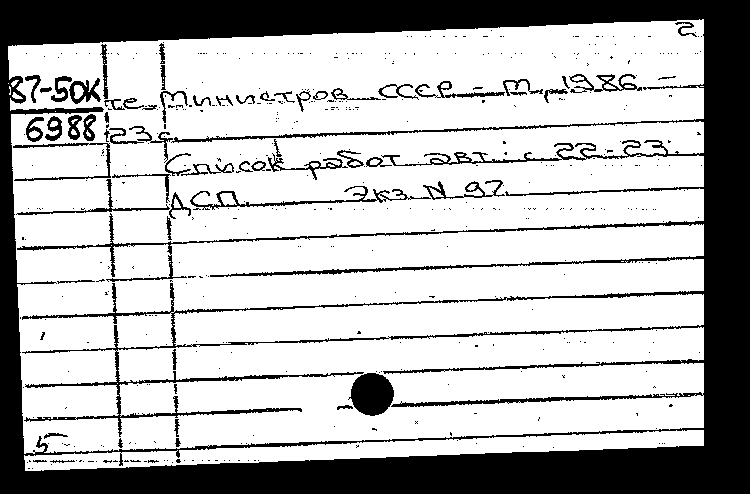 2
87-5ОК те Министров СССР. - М., 1986. -
6988 23 с.
Список работ авт.: с. 22-23.
ДСП. Экз. N 97.
5